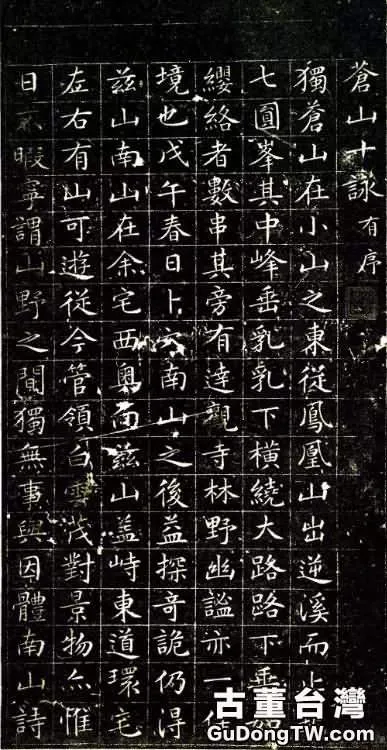 蒼山十詠 有序
獨蒼山在小山之東從鳳凰山出逆溪而止
七圓峯其中峰垂乳乳下橫繞大路路下垂如
纓絡者數串其旁有達觀寺林野幽謐亦一佳
境也戊午春日卜穴南山之後益探奇詭仍得
茲山南山在余宅西奧而茲山蓋峙東道環宅
左右有山可遊從今管領白雲茂對景物亦惟
日不暇寧謂山野之間獨無事與因體南山詩
古董台灣
GuDongTW.com